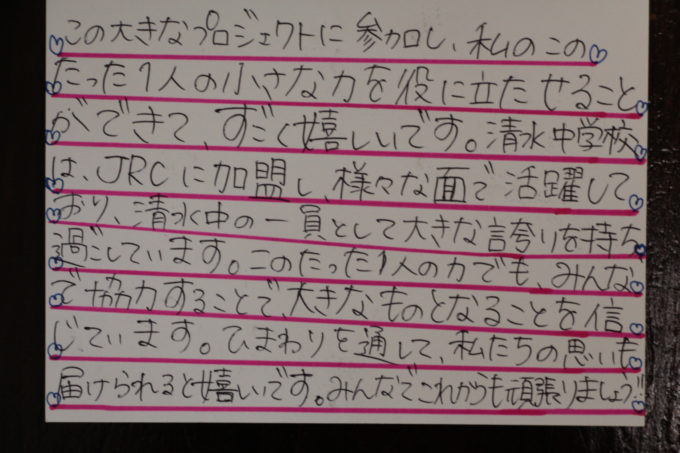 この大きなプロジェクトに参加し、私のこの
たった1人の小さな力を役に立たせること
ができて、すごく嬉しいです。清水中学校
は、JRCに加盟し、様々な面で活躍して
おり、清水中の一員として大きな誇りを持ち
過ごしています。このたった1人の力でも、みんな
で協力することで、大きなものとなることを信
じています。ひまわりを通して、私たちの思いも
届けられると嬉しいです。みんなでこれからも頑張りましょう!!